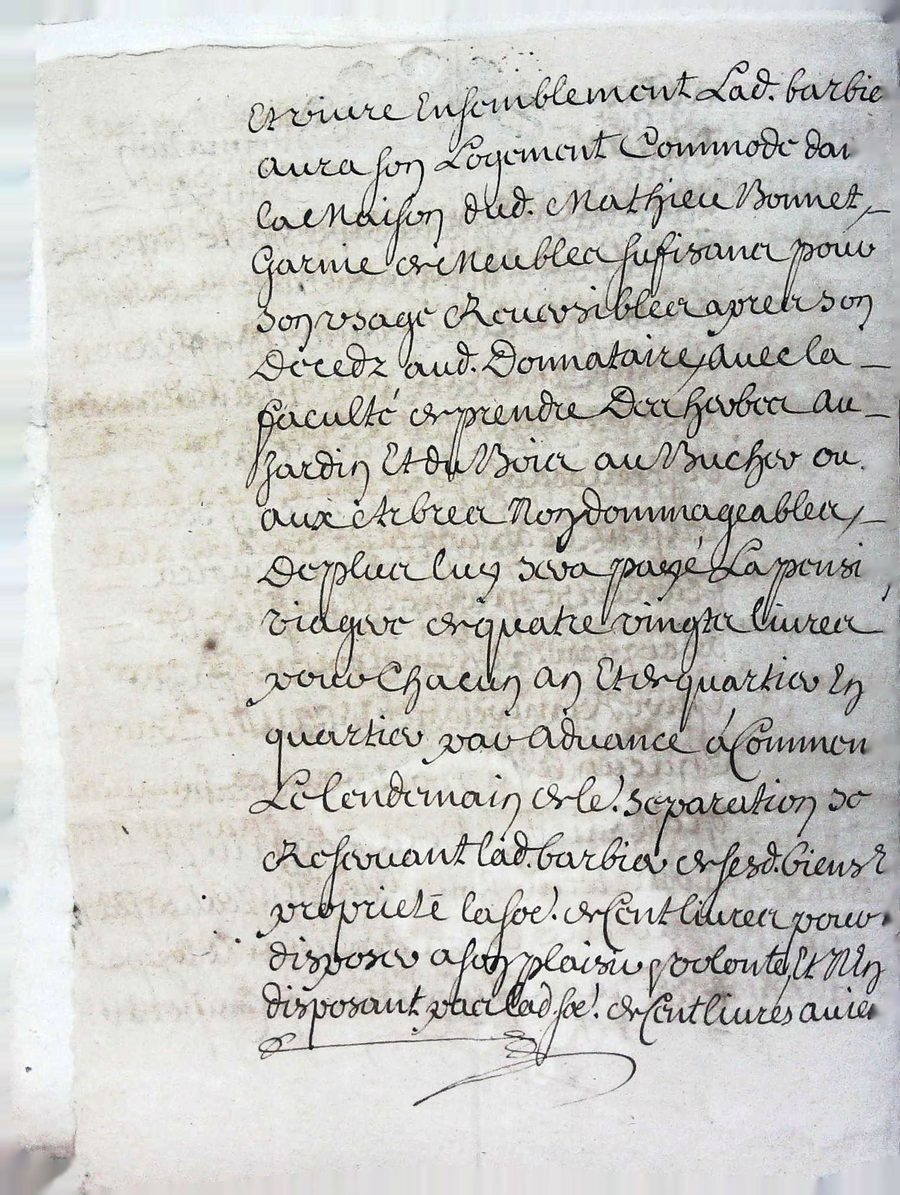 Et vivre Ensemblement Lad. barbie
aura son Logement Commode dan
la Maison dud. Mathieu Bonnet,
Garnie de Meubles sufisans pour
son usage Reversibles apres son
Decedz aud. Donnataire, avec la
faculté de prendre Des herbes au
Jardin Et du Bois au Bucher ou
aux Arbres Non dommageables,
De plus luy sera payé La pensi
viagere de quatre vingts livres
pour Chacun an Et de quartier En
quartier par advance à Commen
Le lendemain de le. separation se
Reservant lad. barbier de sesd. biens
proprieté la soe. de Cent livres pour
disposer a son plaisir volonté, Et N'En
disposant pas lad. soe. de Cent livres